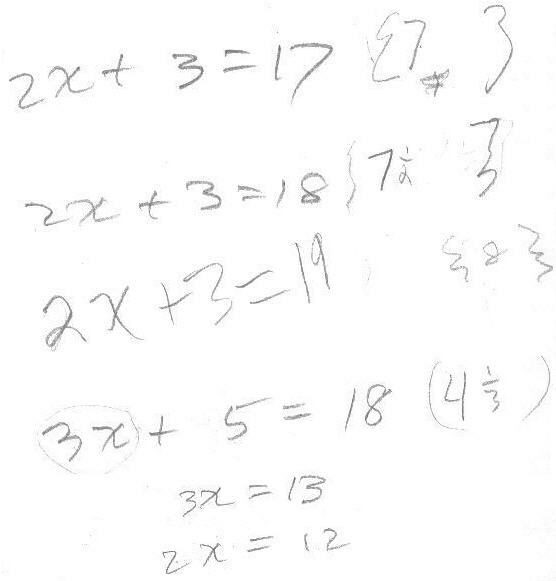 2x + 3 = 17 {7 }
2x + 3 = 18 {7 1/2 }
2x + 3 = 19 {8}
3x + 5 = 18 (4 1/3)
3x = 13
2x = 12